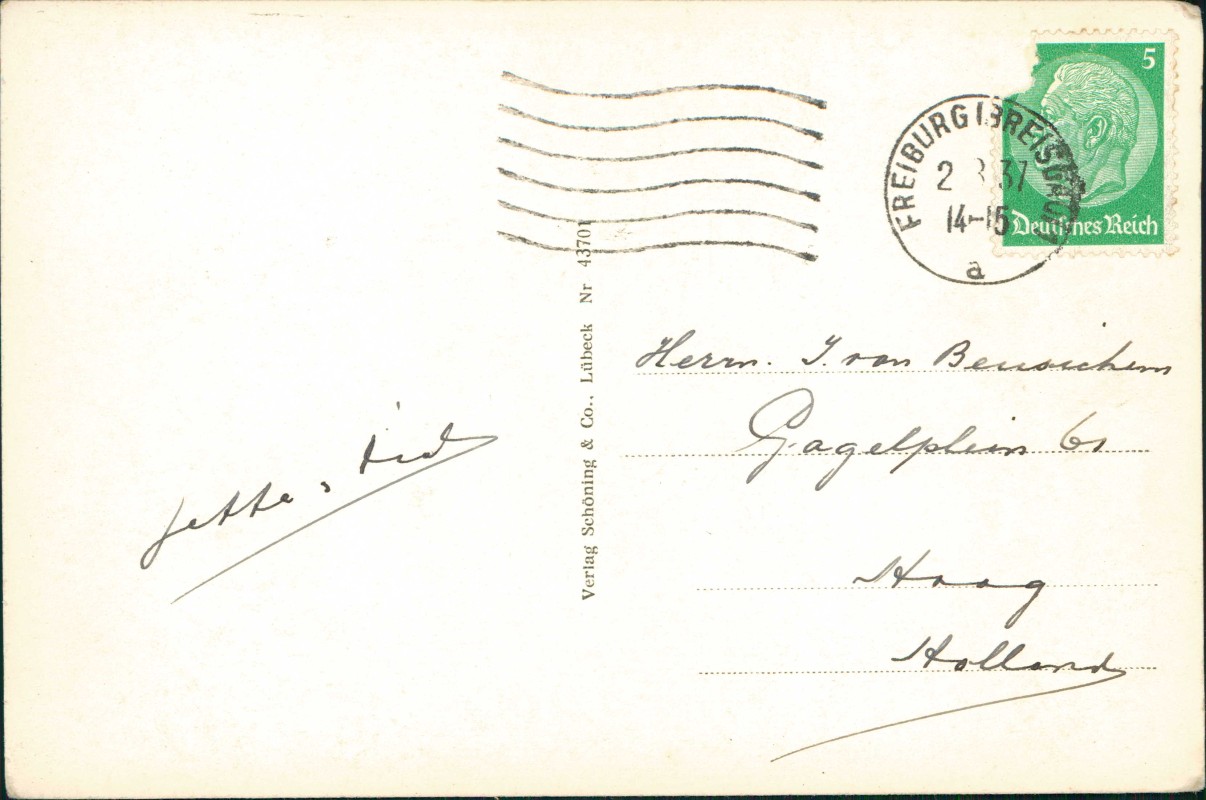 5
Deutsches Reich
FREIBURG I. BREISGAU
2. 8. 37
14-15
a
Verlag Schöning & Co., Lübeck Nr 43701
Herrn. J. van Beusichem
Gagelplein 61
Haag
Holland
Jette,